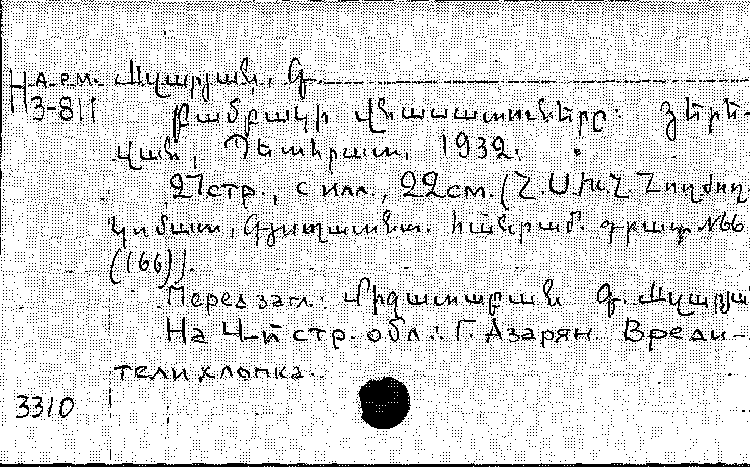 Н А-р.м. Ազարյան, Գ.
3-811 Բամբակի վնասատուները: Յերե-
վան, Պետհրատ, 1932.
27 стр., с илл., 22 см. (Հ.Ս.Խ.Հ. Հողժող
կոմատ, Գյուղատնտ. հանրամ. գրադ. №66
(166)).
Перед загл.: Միջատաբան Գ. Ազարյա
На 4-й стр. обл.: Г. Азарян. Вреди-
тели хлопка.
3310